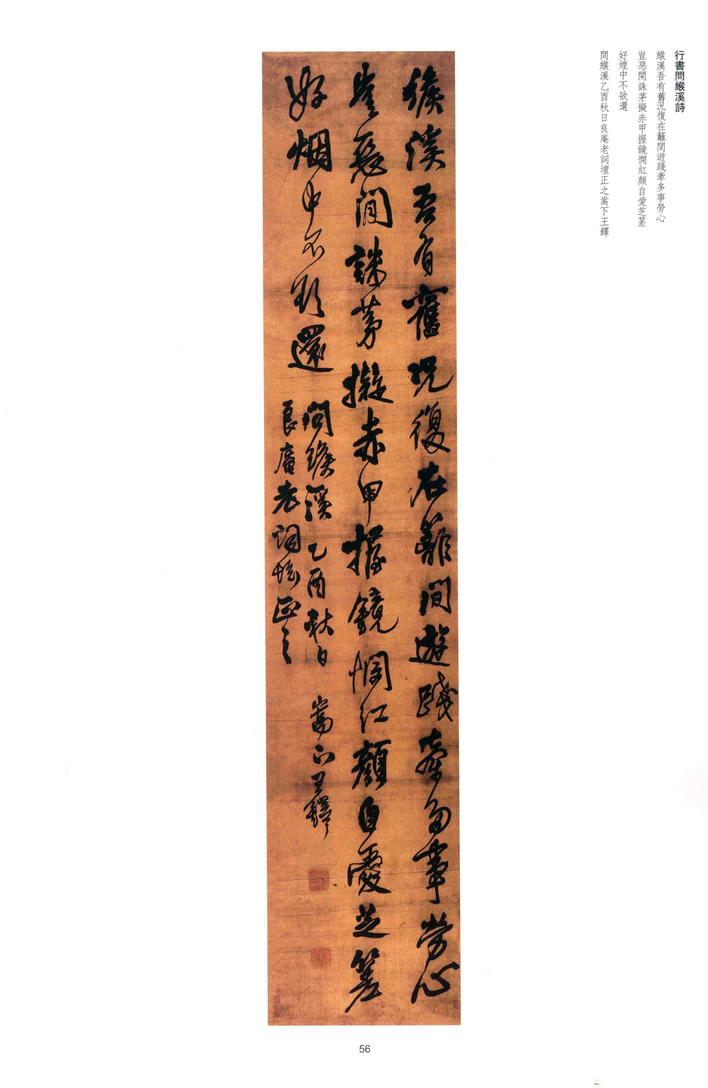 行書問緱溪詩
緱溪吾有舊況復在籬間遊踐牽多事勞心
豈惡閑誅茅擬赤甲握鏡憫紅顏自愛芝荖
好煙中不欲還
問緱溪乙酉秋日良庵老詞壇正之嵩下王鐸
緱溪吾有舊況復在籬間遊踐牽多事勞心
豈惡閒誅茅擬赤甲握鏡憫紅顏自愛芝荖
好烟中不欲還
問緱溪乙酉秋日
良庵老詞壇正之
嵩下王鐸
56